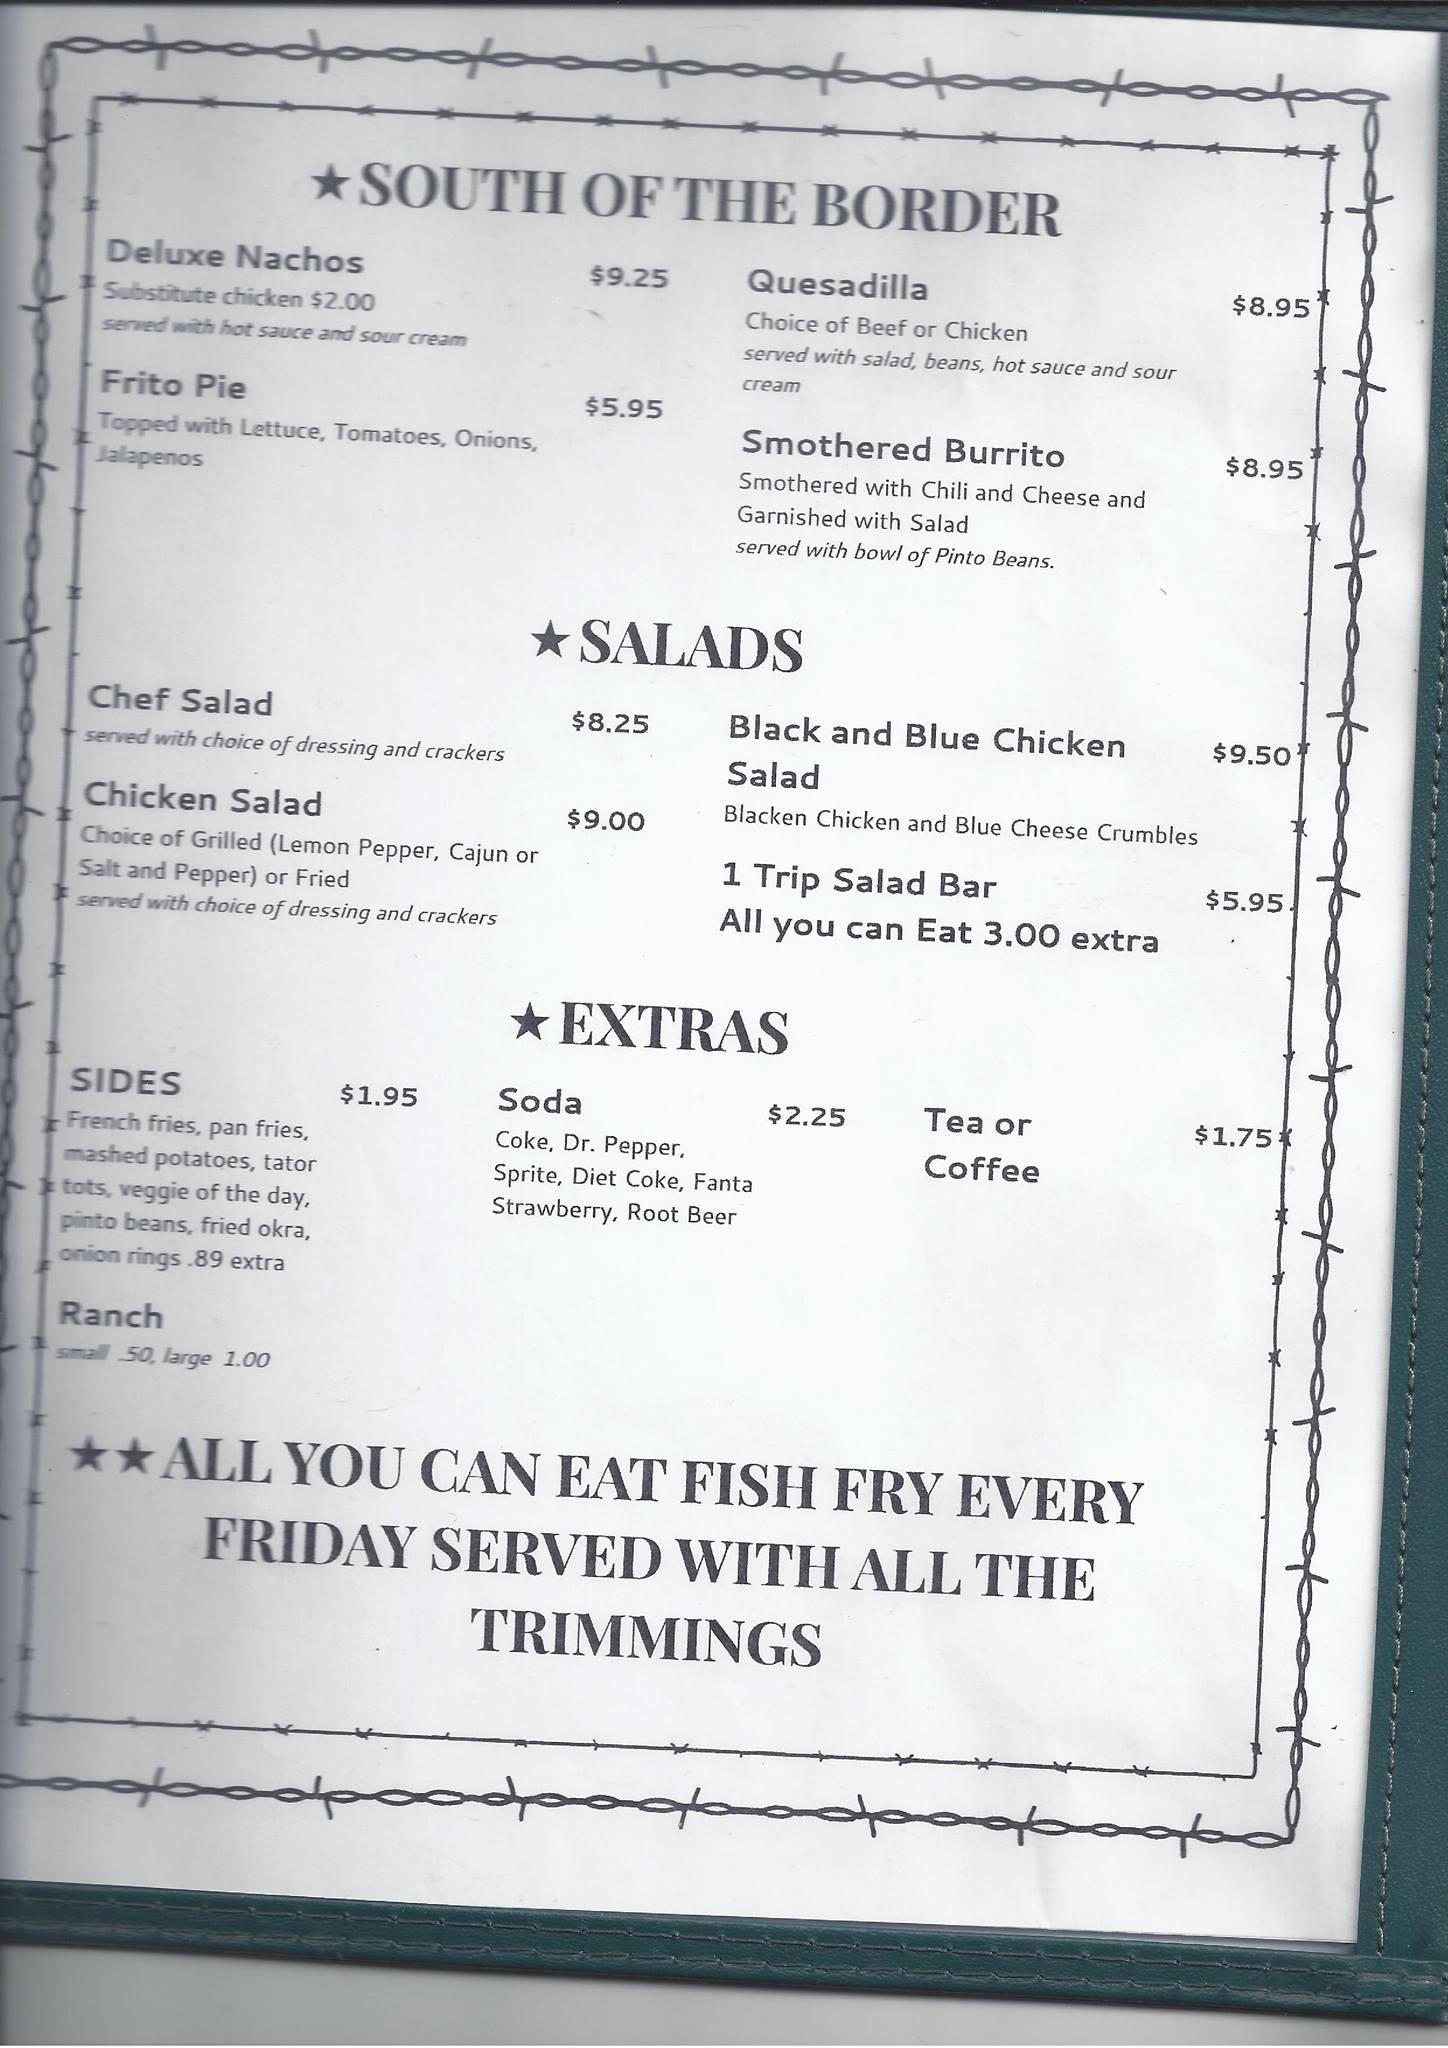 ★SOUTH OF THE BORDER
Deluxe Nachos $9.25
Substitute chicken $2.00
served with hot sauce and sour cream
Frito Pie $5.95
Topped with Lettuce, Tomatoes, Onions,
Jalapenos
Quesadilla $8.95
Choice of Beef or Chicken
served with salad, beans, hot sauce and sour
cream
Smothered Burrito $8.95
Smothered with Chili and Cheese and
Garnished with Salad
served with bowl of Pinto Beans.
★SALADS
Chef Salad $8.25
served with choice of dressing and crackers
Chicken Salad $9.00
Choice of Grilled (Lemon Pepper, Cajun or
Salt and Pepper) or Fried
served with choice of dressing and crackers
Black and Blue Chicken $9.50
Salad
Blacken Chicken and Blue Cheese Crumbles
1 Trip Salad Bar $5.95
All you can Eat 3.00 extra
★EXTRAS
SIDES $1.95
French fries, pan fries,
mashed potatoes, tator
tots, veggie of the day,
pinto beans, fried okra,
onion rings .89 extra
Ranch
small .50, large 1.00
Soda $2.25
Coke, Dr. Pepper,
Sprite, Diet Coke, Fanta
Strawberry, Root Beer
Tea or $1.75
Coffee
★★ALL YOU CAN EAT FISH FRY EVERY
FRIDAY SERVED WITH ALL THE
TRIMMINGS